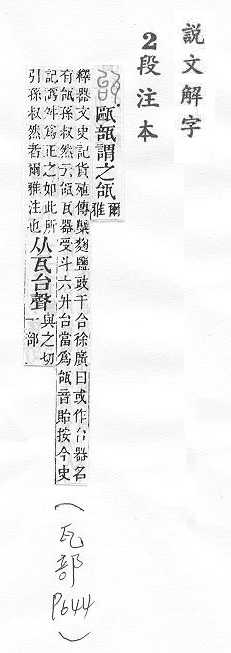 說文解字
2段注本
甌瓿謂之瓵爾
雅
釋器文史記貨殖傳糱麴鹽豉千合徐廣曰或作台器名
有瓵孫叔然云瓵瓦器受斗六升台當爲瓵音貽按今史
記譌舛爲正之如此所
引孫叔然者爾雅注也
从瓦台聲
與之切
一部
(瓦部 P644)